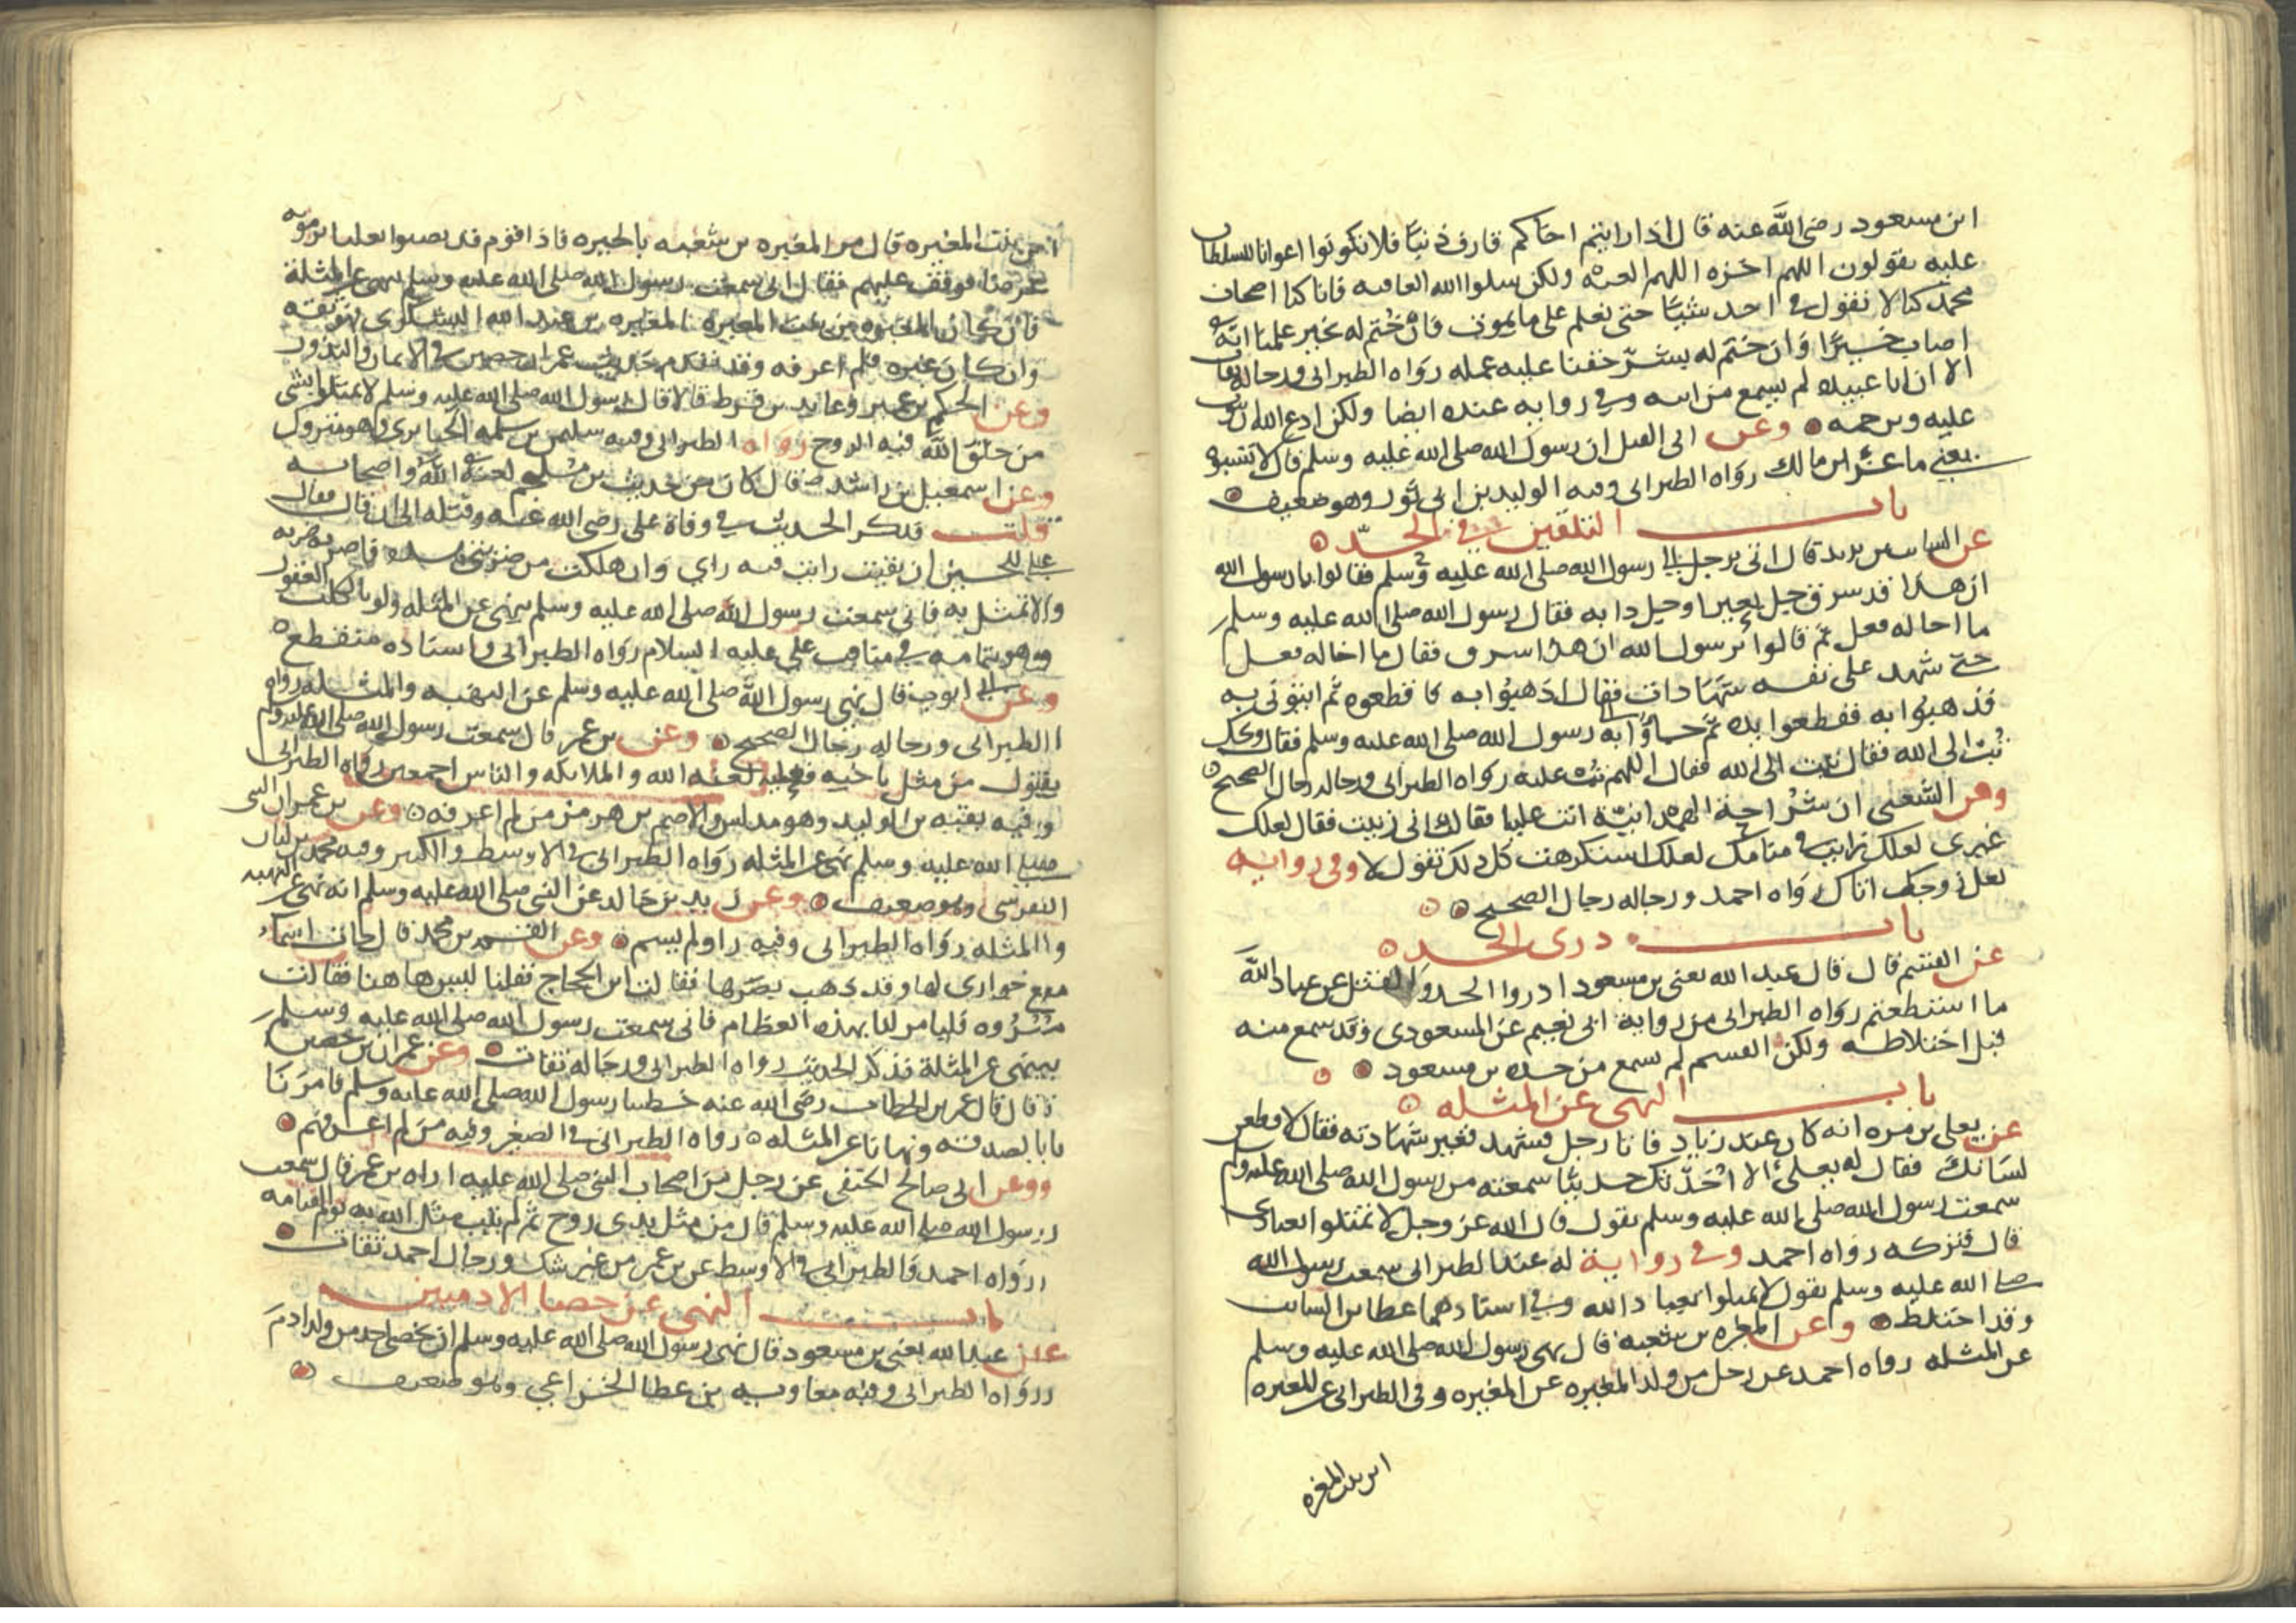 ابن مسعود رضى الله عنه قال اذا رايتم اخاكم قارف ذنبا فلا تكونوا اعوانا للسلطان
عليه يقولون اللهم اخزه اللهم العنه ولكن سلوا الله العافيه فانا كنا اصحاب
محمد كنا لا نقول في احد شيئا حتى نعلم على ما يموت فان ختم له بخير علمنا انه
اصاب خيرا وان ختم له بشر خفنا عليه عمله رواه الطبرانى ورجاله ثقات
الا ان ابا عبيده لم يسمع من ابيه وفي روايه عنده ايضا ولكن ادع الله ان يتوب
عليه ويرحمه وعن ابى الفيل ان رسول الله صلى الله عليه وسلم قال لا تسبوه
يعني ماعز بن مالك رواه الطبرانى وفيه الوليد بن ابى ثور وهو ضعيف
باب التلقين في الحد
عن السايب بن يزيد قال اتى برجل الى رسول الله صلى الله عليه وسلم فقالوا يا رسول الله
ان هذا قد سرق جمل بعيرا وجمل دابه فقال رسول الله صلى الله عليه وسلم
ما اخاله فعل ثم قالوا يرسول الله ان هذا سرق فقال ما اخاله فعل
حتى شهد على نفسه شهادات فقال اذهبوا به فاقطعوه ثم ايتونى به
فذهبوا به فقطعوا يده ثم جاؤا به الى رسول الله صلى الله عليه وسلم فقال ويحك
تب الى الله فقال تبت الى الله فقال اللهم تب عليه رواه الطبرانى ورجاله رجال الصحيح
وعن الشعبي ان شراحة الهمدانية اتت عليا فقالت انى زنيت فقال لعلك
غيرى لعلك رايت في منامك لعلك استكرهت كل ذلك تقول لا وفى روايه
لعل زوجك اتاك رواه احمد ورجاله رجال الصحيح
باب درى الحد
عن القسم قال قال عبد الله يعنى بن مسعود ادروا الحد والقتل عن عباد الله
ما استطعتم رواه الطبرانى من رواية ابى نعيم عن المسعودى وقد سمع منه
قبل اختلاطه ولكن القسم لم يسمع من جده بن مسعود
باب النهى عن المثله
عن يعلى بن مره انه كان عند زياد فاتا رجل فشهد فغير شهادته فقال لاقطعن
لسانك فقال له يعلى الا احدثك حديثا سمعته من رسول الله صلى الله عليه وسلم
سمعت رسول الله صلى الله عليه وسلم يقول قال الله عز وجل لا تمثلوا بعبادى
قال فتركه رواه احمد وفي رواية له عند الطبرانى سمعت رسول الله
صلى الله عليه وسلم يقول لا تمثلوا بعباد الله وفي اسنادهما عطا بن السايب
وقد اختلط وعن المغيره بن شعبه قال نهى رسول الله صلى الله عليه وسلم
عن المثله رواه احمد عن رجل من ولد المغيره عن المغيره وفى الطبرانى عن المغيره
ابن بنت المغيره
ابن بنت المغيره قال مر المغيره بن شعبه بالحيره فاذا قوم قد نصبوا ثعلبا يرمونه
غرضا فوقف عليهم فقال انى سمعت رسول الله صلى الله عليه وسلم ينهى عن المثلة
فان كان المغيره بن بنت المغيره المغيره بن عبد الله اليشكرى فهو ثقه
وان كان غيره فلم اعرفه وقد تقدم حديث عمران بن حصين في الايمان والنذور
وعن الحكم بن عمير وعايد بن قرط قالا قال رسول الله صلى الله عليه وسلم لا تمثلوا بشى
من خلق الله فيه الروح رواه الطبرانى وفيه سليمن بن سلمه الخبايرى وهو متروك
وعن اسمعيل بن راشد قال كان من حديث بن ملجم لعنه الله واصحابه
قلت فذكر الحديث في وفاة على رضى الله عنه وقتله الى ان قال فقال
على للحسن ان بقيت رايت فيه راي وان هلكت من ضربتى هذه فاضربه ضربه
ولا تمثل به فانى سمعت رسول الله صلى الله عليه وسلم ينهى عن المثله ولو بالكلب العقور
وهو بتمامه في مناقب على عليه السلام رواه الطبرانى واسناده منقطع
وعن ابى ايوب قال نهى رسول الله صلى الله عليه وسلم عن النهبه والمثله رواه
الطبرانى ورجاله رجال الصحيح وعن بن عمر قال سمعت رسول الله صلى الله عليه وسلم
يقول من مثل باخيه فعليه لعنه الله والملايكه والناس اجمعين رواه الطبرانى
وفيه بقيه بن الوليد وهو مدلس والاصم بن هرمز من لم اعرفه وعن بن عمر ان النبى
صلى الله عليه وسلم نهى عن المثله رواه الطبرانى في الاوسط والكبير وفيه محمد بن ليان
النفرسى وهو ضعيف وعن زيد بن خالد عن النبى صلى الله عليه وسلم انه نهى عن النهبه
والمثله رواه الطبرانى وفيه راو لم يسم وعن القسم بن محمد قال جات اسما
مع جوارى لها وقد ذهب بصرها فقالت اين الحجاج فقلنا ليس هاهنا فقالت
مروه فليامر لنا بهذه العظام فانى سمعت رسول الله صلى الله عليه وسلم
ينهى عن المثلة فذكر الحديث رواه الطبرانى ورجاله ثقات وعن عمران بن حصين
قال قال عمر بن الخطاب رضى الله عنه خطبنا رسول الله صلى الله عليه وسلم فامرنا
بالصدقه ونهانا عن المثله رواه الطبرانى في الصغير وفيه من لم اعرفهم
وعن ابى صالح الحنفى عن رجل من اصحاب النبى صلى الله عليه اراه بن عمر قال سمعت
رسول الله صلى الله عليه وسلم قال من مثل بذى روح ثم لم يتب مثل الله به يوم القيامه
رواه احمد والطبرانى في الاوسط عن بن عمر من غير شك ورجال احمد ثقات
باب النهى عن خصا الادميين
عن عبد الله يعنى بن مسعود قال نهى رسول الله صلى الله عليه وسلم ان يخصى احد من ولد ادم
رواه الطبرانى وفيه معاويه بن عطا الخزاعي وهو ضعيف